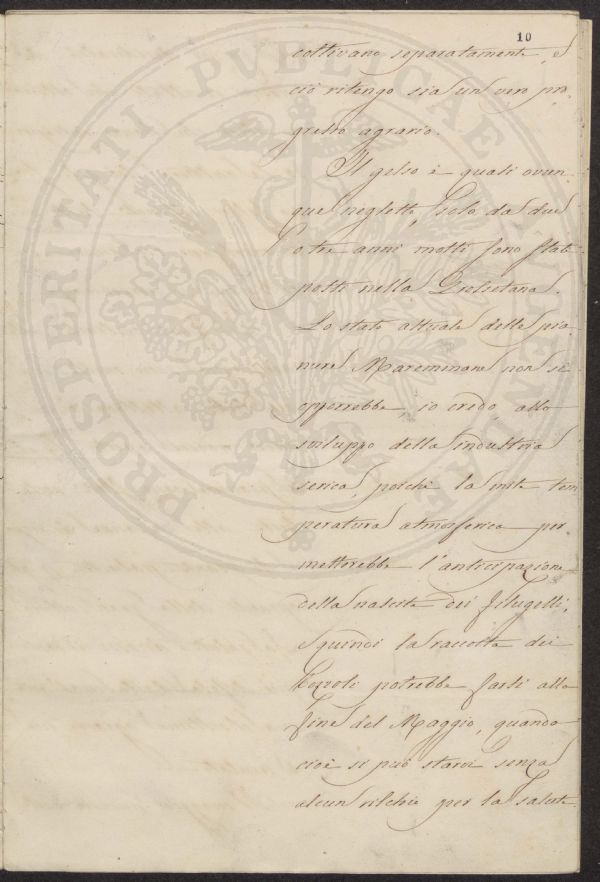 10
coltivano separatamente, e
ciò ritengo sia un vero pro-
gresso agrario.
Il gelso è quasi ovun-
que negletto, solo da due
o tre anni molti sono stati
posti nella Grossetana.
Lo stato attuale delle pia-
nure Maremmane non si
opporrebbe, io credo, allo
sviluppo della industria
serica, poichè la mite tem
peratura atmosferica per
metterebbe l'anticipazione
della nascita dei filugelli,
e quindi la raccolta dei
bozzoli potrebbe farsi alla
fine del Maggio, quando
cioè si può starvi senza
alcun rischio per la salute.
PROSPERITATI PVBLICAE AVGENDAE